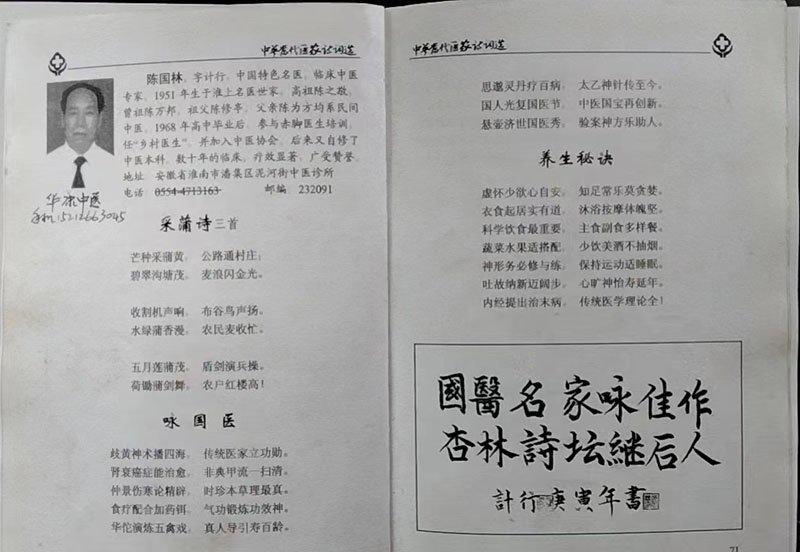 中华当代医家诗词选
陈国林，字计行，中国特色名医，临床中医
专家，1951年生于淮上名医世家，高祖陈之敬，
曾祖陈万邦，祖父陈修亭，父亲陈为方均系民间
中医，1968年高中毕业后，参与赤脚医生培训，
任“乡村医生”，并加入中医协会，后来又自修了
中医本科，数十年的临床，疗效显著，广受赞誉。
地址：安徽省淮南市潘集区泥河街中医诊所
电话：0554-4713163 邮编：232091
华康中医
手机15215663045
采蒲诗三首
芒种采蒲黄，公路通村庄；
碧翠沟塘茂，麦浪闪金光。
收割机声响，布谷鸟声扬。
水绿蒲香漫，农民麦收忙。
五月莲蒲茂，盾剑演兵操。
荷锄蒲剑舞，农户红楼高！
咏国医
歧黄神术播四海，传统医家立功勋。
肾衰癌症能治愈，非典甲流一扫清。
仲景伤寒论精辟，时珍本草理最真。
食疗配合加药饵，气功锻炼功效神。
华佗演炼五禽戏，真人导引寿百龄。
中华当代医家诗词选
思邈灵丹疗百病，太乙神针传至今。
国人光复国医节，中医国宝再创新。
悬壶济世国医秀，验案神方乐助人。
养生秘诀
虚怀少欲心自安，知足常乐莫贪婪。
衣食起居实有道，沐浴按摩体魄坚。
科学饮食最重要，主食副食多样餐。
蔬菜水果适搭配，少饮美酒不抽烟。
神形务必修与练，保持运动适睡眠。
吐故纳新迈阔步，心旷神怡寿延年。
内经提出治未病，传统医学理论全！
國醫名家咏佳作
杏林詩坛継后人
計行 庚寅年書
71